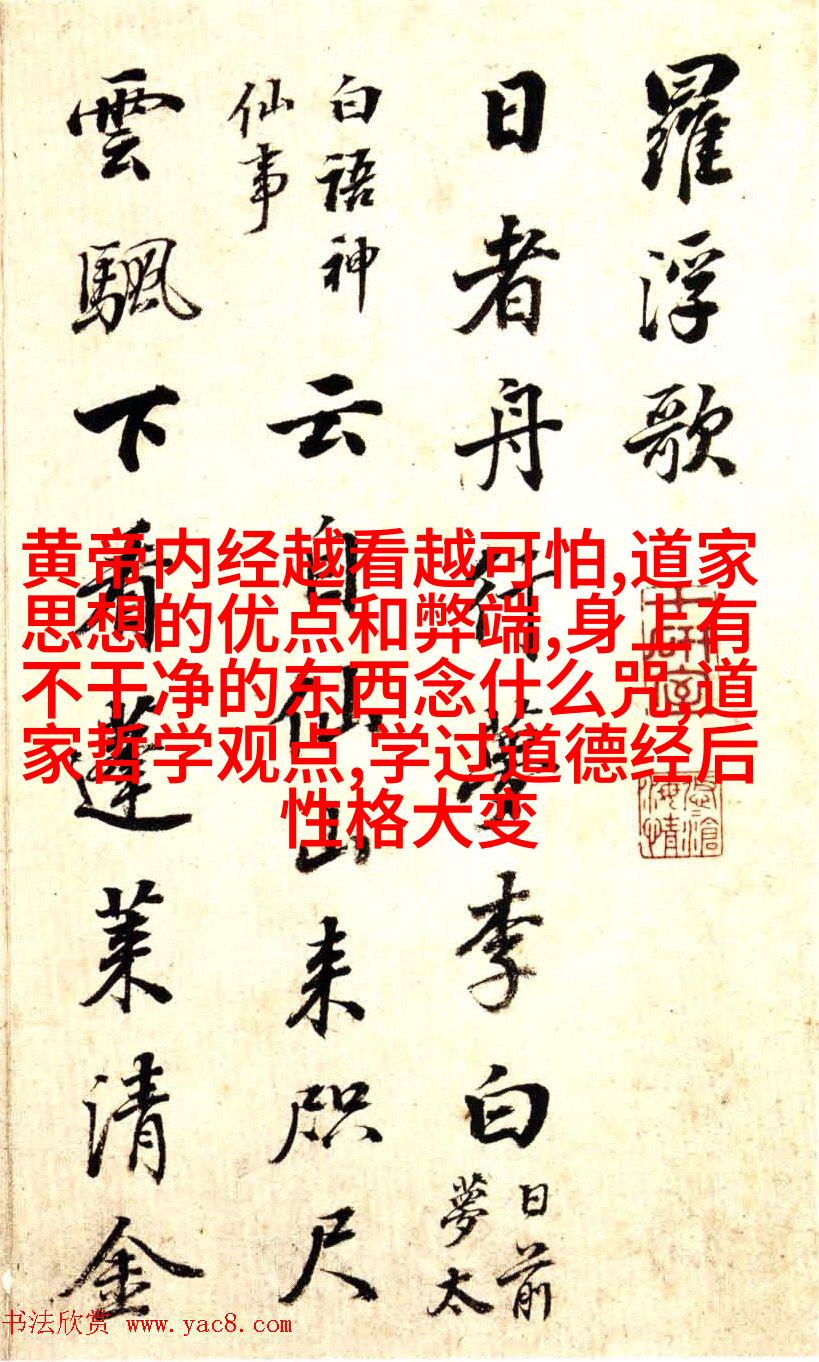 羅浮歌
日者舟行夢李白日前夢太
白語神仙事云自仙山来咫尺
雲颿下看蓬莱清金
黄帝内经越看越可怕,道家
思想的优点和弊端,身上有
不干净的东西念什么咒,道
家哲学观点,学过道德经后
性格大变
书法欣赏 www.yac8.com